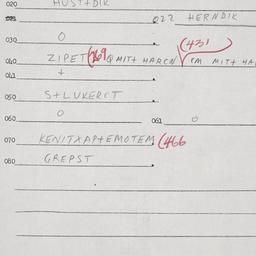 020 HUSTTDIK
021 022 HERNDIK
030 O (431
040 ZIPET (269 @ MITT HARCN CM MITT HA
041 +
050 S+LUKERCT
060 O 061 O
070 KENITXAPTEMOTEM (466
080 GREPST